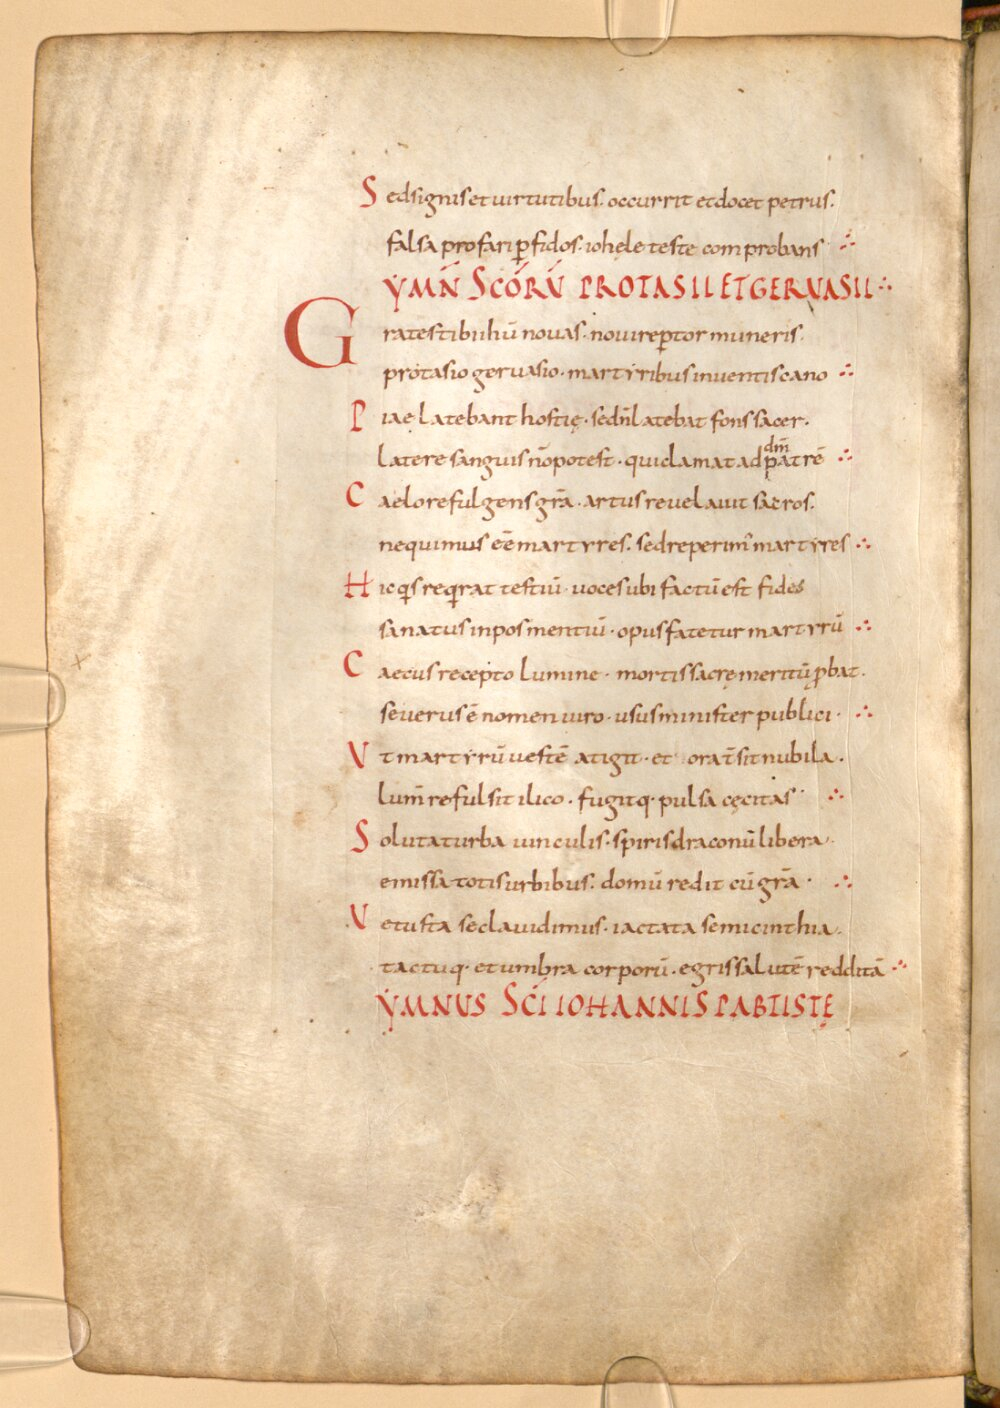 Sed signis et uirtutibus. occurrit et docet petrus.
falsa profari ꝑfidos. iohele teste comprobans ∴
ẎMN̄ SCŌRV̄ PROTASII ET GERUASII ∴
Grates tibi ihū nouas. noui reꝑtor muneris.
protasio geruasio. martẏribus inuentis cano ∴
Piae latebant hostię. sed n̄ latebat fons sacer.
latere sanguis nō potest. qui clamat ad patrē dm̄ ∴
Caelo refulgens grā. artus reuelauit sacros.
nequimus eē martyres. sed reperim' martẏres ∴
Hic qͥs reqͥrat testiū. uoces ubi factū est fides
sanatus inpos mentiū. opus fatetur martẏrū ∴
Caecus recepto lumine. mortis sacrę meritū ꝓbat.
seuerus ē nomen uiro. usus minister publici. ∴
Vt martẏrū uestē atigit. et ora t̄sit nubila.
lum̄ refulsit ilico. fugitq. pulsa cęcitas ∴
Soluta turba uinculis. spiris draconū libera.
emissa totis urbibus. domū redit cū grā. ∴
Vetusta secla uidimus. iactata semicinthia.
tactuq. et umbra corporū. egris salutē redditā ∴
ẎMNUS SC̄I IOHANNIS PABTISTĘ